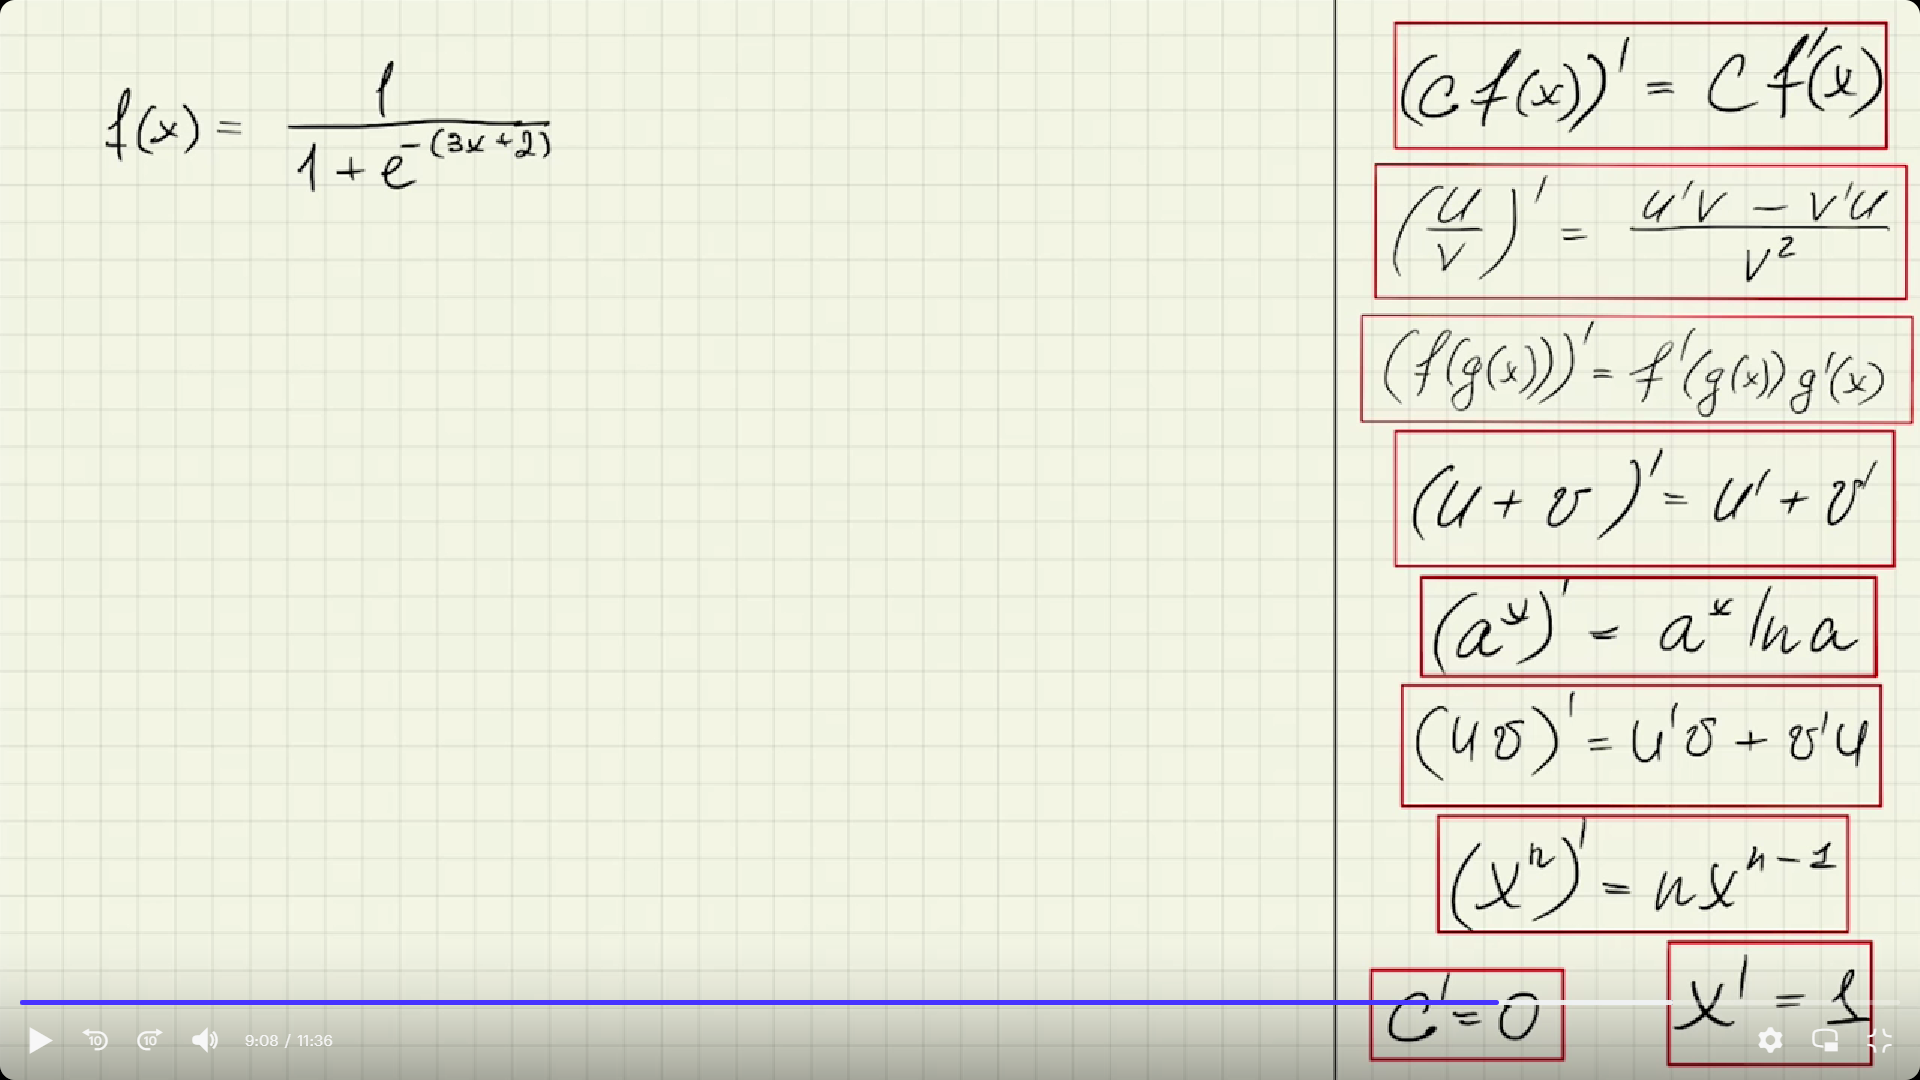 f(x) = 1 / (1 + e^-(3x+2))
(C f(x))' = C f'(x)
(u/v)' = (u'v - v'u) / v²
(f(g(x)))' = f'(g(x)) g'(x)
(u + v)' = u' + v'
(a^x)' = a^x ln a
(uv)' = u'v + v'u
(x^n)' = nx^(n-1)
C' = 0
x' = 1
10
10
9:08 / 11:36